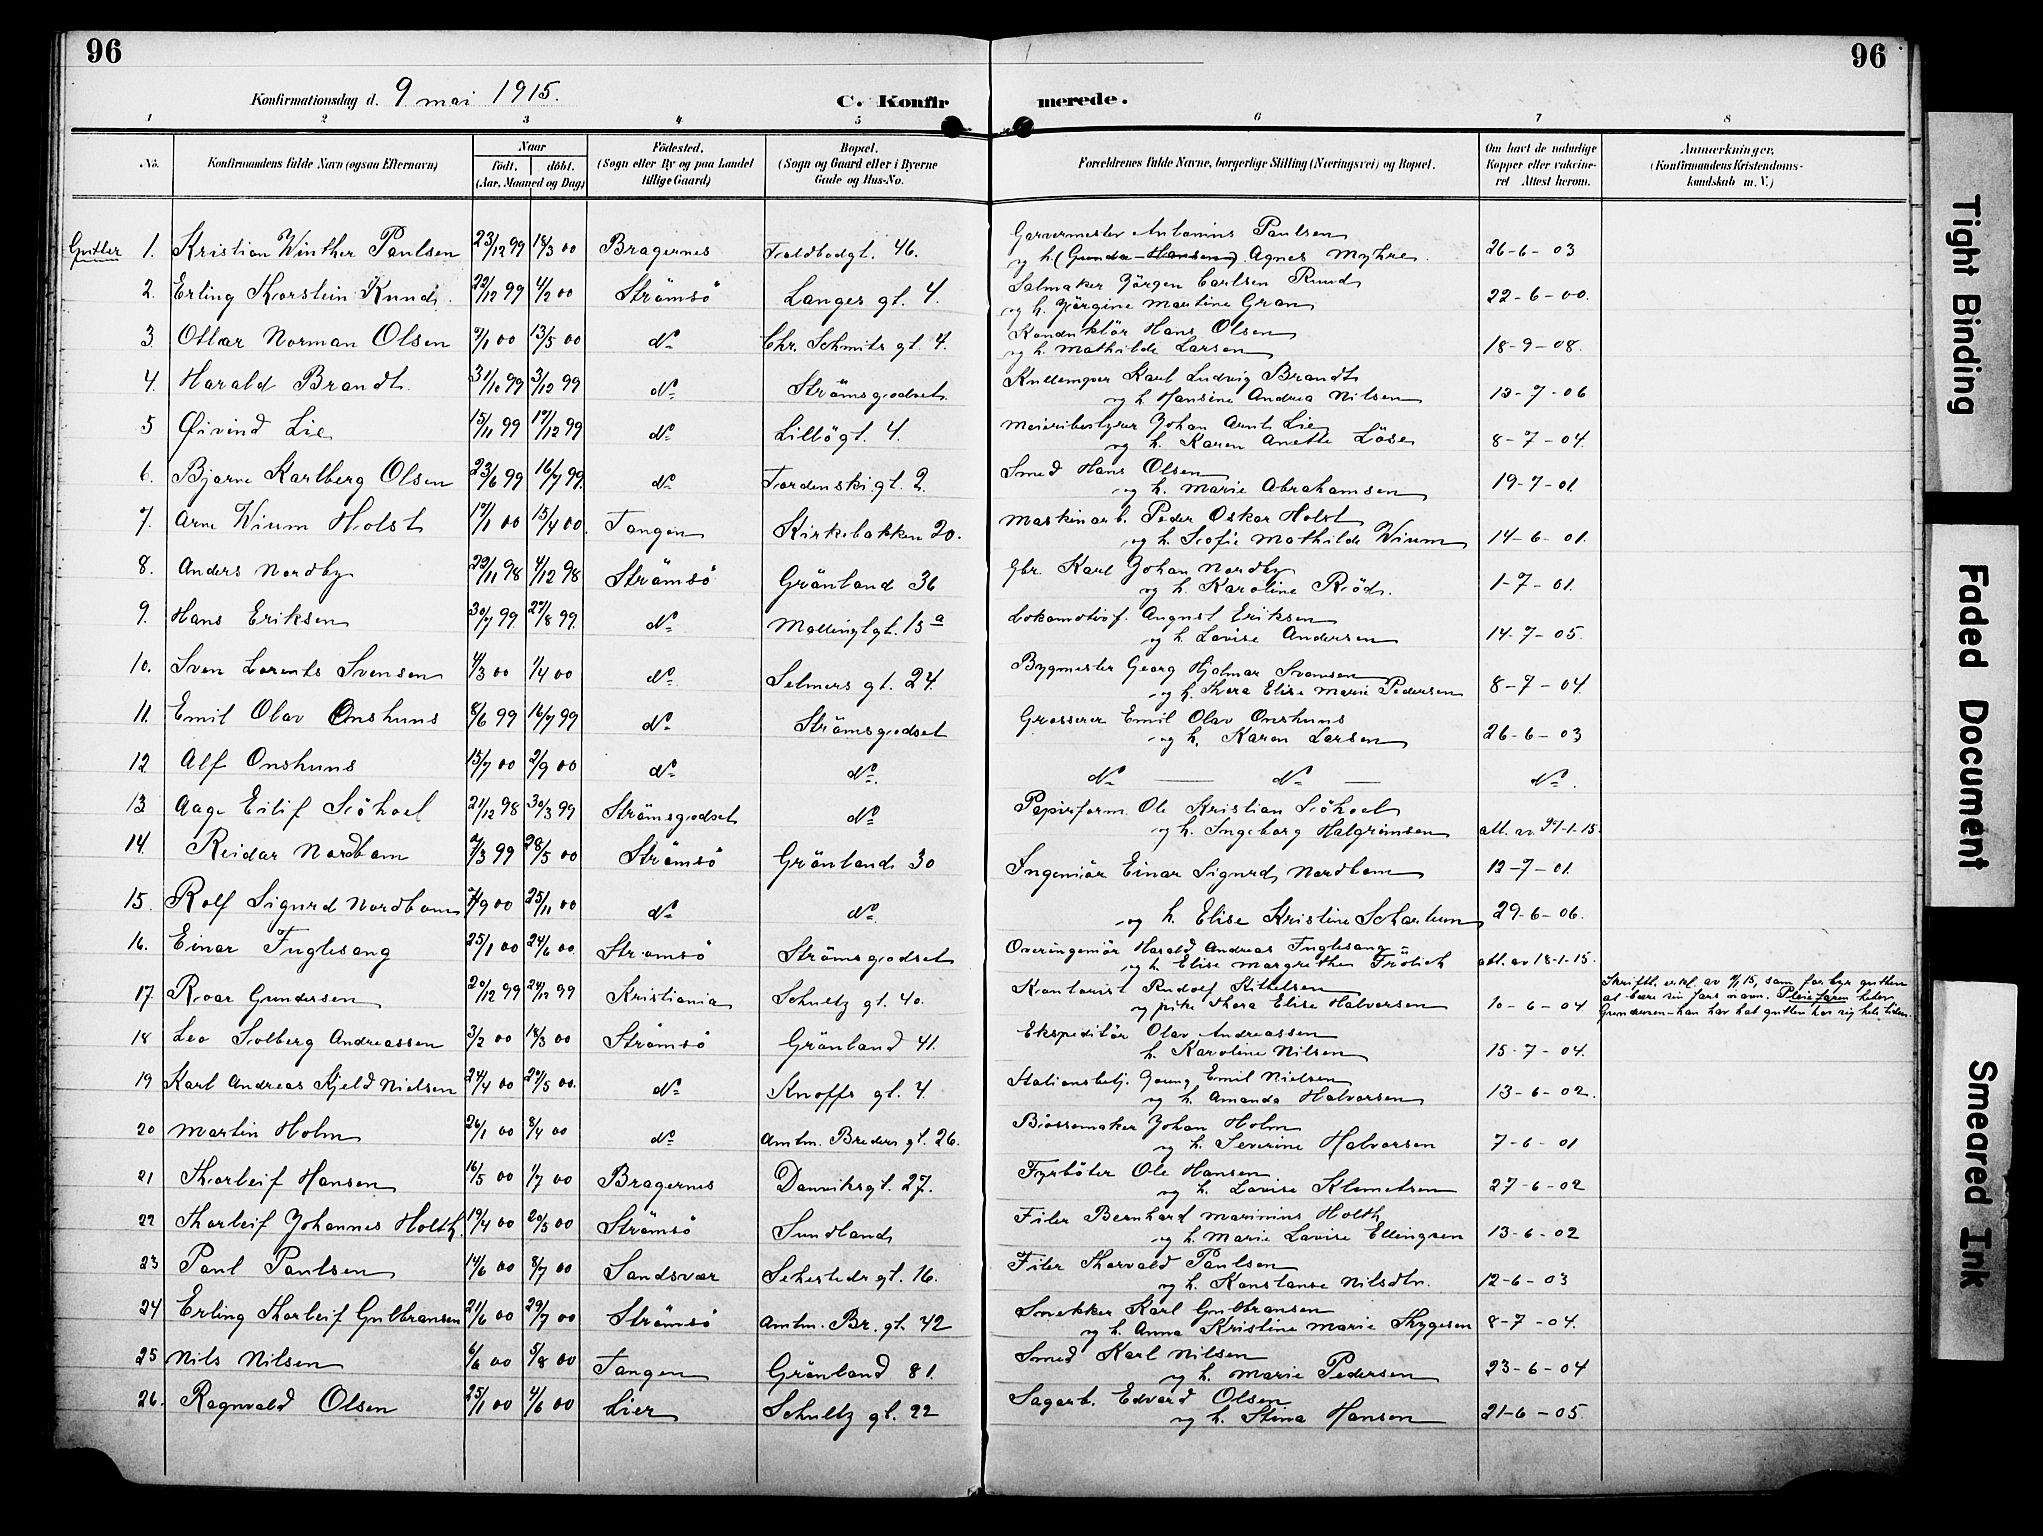 96
96
Konfirmationsdag d. 9 mai 1915.
C. Konfirmerede.
1 2 3 4 5 6 7 8
No. Konfirmandens fulde Navn (ogsaa Efternavn) Naar født, døbt. (Aar, Maaned og Dag) Födested, (Sogn eller By og paa Landet tillige Gaard) Bopæl. (Sogn og Gaard eller i Byerne Gade og Hus-No. Forældrenes fulde Navne, borgerlige Stilling (Næringsvei) og Bopæl. Om havt de naturlige Kopper eller vakcineret Attest herom. Anmærkninger, (Konfirmandens Kristendomskundskab m. V.)
Gutter 1. Kristian Winther Paulsen 23/12 99 18/3 00 Bragernes Toldbodgt. 46. Garvermester Antonius Paulsen
og h. (Gunda Hansen) Agnes Myhre. 26-6-03
2. Erling Thorstein Ruud. 22/12 99 4/2 00 Strömsö Langes gt. 4. Salmaker Jörgen Carlsen Ruud
og h. Jörgine Martine Gran 22-6-00.
3 Ottar Norman Olsen 9/1 00 13/5 00 do Chr. Schmits gt. 4. Konduktör Hans Olsen
og h. Mathilde Larsen 18-9-08.
4. Harald Brandt 31/10 99 3/12 99 do Strömsgodset Karl Ludvig Brandt
og h. Hansine Andrea Nilsen 13-7-06
5 Øivind Lie 15/11 99 17/12 99 do Lillögt. 4. Meieribestyrer Johan Arnt Lie
og h. Karen Anette Löse 8-7-04.
6. Bjarne Karlberg Olsen 23/6 99 16/7 99. do Tordenskj gt. 2. Smed Hans Olsen
og h. Marie Abrahamsen 19-7-01.
7. Arne Wium Holst 17/1 00 15/4 00. Tangen Kirkebakken 20. Maskinarb. Peder Oskar Holst
og h. Sofie Mathilde Wium 14-6-01.
8. Anders Nordby 22/11 98 4/12 98 Strömsö Grönland 36 Gbr. Karl Johan Nordby
og h. Karoline Röd. 1-7-01.
9. Hans Eriksen 30/7 99. 27/8 99. do Mallingt gt. 15a Lokomotivf. August Eriksen
og h. Lovise Andersen 14-7-05.
10. Sven Lorents Svensen 4/3 00 1/4 00 do Selmers gt. 24. Bygmester Georg Hjalmar Svensen
og h. Thora Elise Marie Pedersen 8-7-04.
11. Emil Olav Onshuus 8/6 99 16/7 99 do Strömsgodset Grosserer Emil Olav Onshuus
og h. Karen Larsen 26-6-03
12 Alf Onshuus 15/7 00 2/9 00 do do do — do — do
13 Aage Eilif Siöhoel 21/12 98 30/3 99 Strömsgodset do Papirform. Ole Kristian Siöhoel
og h. Ingeborg Halgrimsen att. av 27-1-15.
14. Reidar Nordbom 7/3 99 28/5 00 Strömsö Grönland 30 Ingeniör Einar Sigurd Nordbom 12-7-01.
15. Rolf Sigurd Nordbom 7/9 00 25/11 00 do do og h. Elise Kristine Scharbum 29-6-06.
16. Einar Fuglesang 25/1 00 24/6 00 Strömsö Strömsgodset Overingeniör Harald Andreas Fuglesang
og h. Elise Margrethe Frölich att. av 18-1-15.
17. Roar Gundersen 20/12 99 24/12 99 Kristiania Schultz gt. 40. Kontorist Rudolf Kittelsen
og pike Thora Elise Halvorsen 10-6-04 Skriftl. erkl. av 4/15, som forbyr gutten
at bære sin fars navn. Pleiefaren heter
Gundersen – han har hat gutten hos sig hele tiden.
18 Leo Solberg Andreassen 3/2 00 18/3 00 Strömsö Grönland 41. Ekspeditör Olav Andreassen
h. Karoline Nilsen 15-7-04.
19 Karl Andreas Kjeld Nielsen 24/4 00 20/5 00. do Knoffs gt. 4. Stationsbetj. Georg Emil Nielsen
og h. Amanda Halvorsen 13-6-02.
20 Martin Holm 26/1 00 8/4 00 do Amtm. Breders gt. 26. Börsemaker Johan Holm
og h. Severine Halvorsen 7-6-01
21 Thorleif Hansen 16/5 00 1/7 00 Bragernes Danviksgt. 27. Fyrböter Ole Hansen
og h. Lovise Klemetsen 27-6-02
22 Thorleif Johannes Holth. 19/4 00 20/5 00 Strömsö Sundland Filer Bernhard Marinius Holth
og h. Marie Lovise Ellingsen 13-6-02
23 Paul Paulsen 14/6 00 8/7 00 Sandsvær Sehesteds gt. 16. Filer Thorvald Paulsen
og h. Konstanse Nilsdtr. 12-6-03
24 Erling Thorleif Gulbransen 21/6 00 29/7 00 Strömsö Amtm. Br. gt. 42 Snekker Karl Gulbransen
og h. Anna Kristine Marie Thygesen 8-7-04.
25 Nils Nilsen 6/6 00 5/8 00 Tangen Grönland 81. Smed Karl Nilsen
og h. Marie Pedersen 23-6-04
26. Ragnvald Olsen 25/1 00 4/6 00 Lier Schultz gt. 22 Sagarb. Edvard Olsen
og h. Stina Hansen 21-6-05.
Tight Binding
Faded Document
Smeared Ink